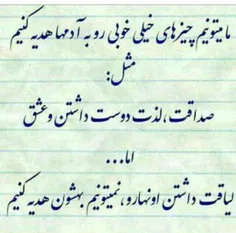 ما میتونیم چیزهای خیلی خوبی رو به آدمها هدیه کنیم
مثل:
صداقت، لذت دوست داشتن وعشق
اما...
لیاقت داشتن اونهارو، نمیتونیم بهشون هدیه کنیم